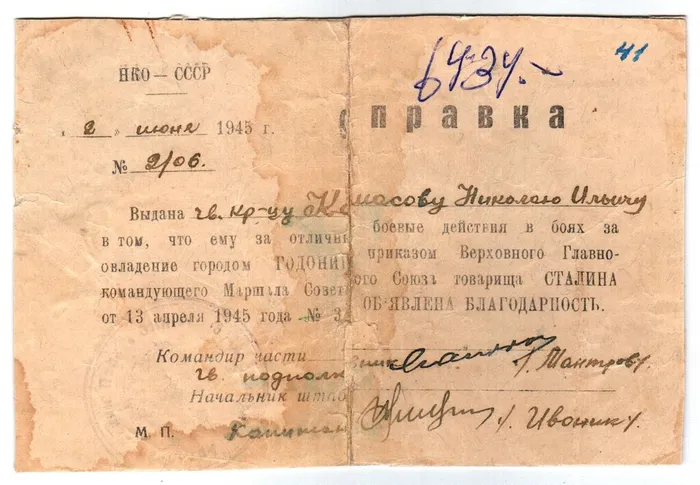 41
НКО — СССР
„ 2 „ июня 1945 г. правка
№ 2/06.
Выдана гв. кр-цу Николаю Ильичу
в том, что ему за отличн боевые действия в боях за
овладение городом ГОДОНИН приказом Верховного Главно-
командующего Маршала Совет го Союза товарища СТАЛИНА
от 13 апреля 1945 года № 3 ОБ'ЯВЛЕНА БЛАГОДАРНОСТЬ.
Командир части
гв. подполк ник / Мантров /
Начальник штаб
М. П. Капитан / Ивоник /